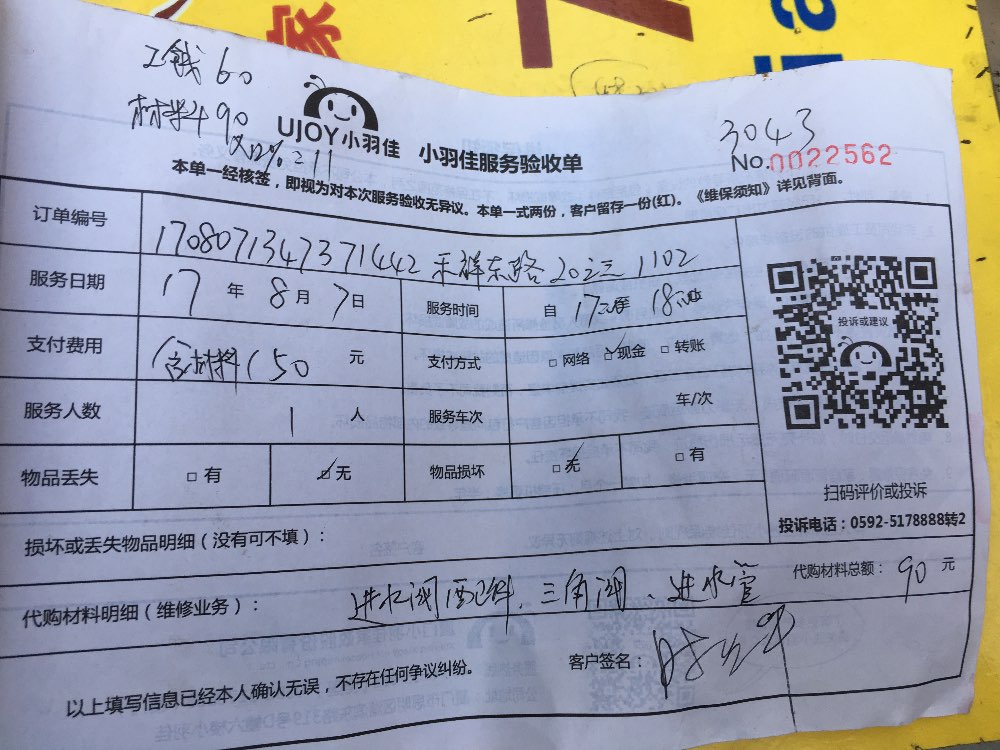 家
工钱60
材料90
UJOY小羽佳 小羽佳服务验收单
3043
No.0022562
本单一经核签，即视为对本次服务验收无异议。本单一式两份，客户留存一份(红)。《维保须知》详见背面。
订单编号 1708071347371442 东路 1102
服务日期 17 年 8 月 7 日 服务时间 自 17 至 18
支付费用 含材料150 元 支付方式 □网络 ☑现金 □转账
服务人数 1 人 服务车次 车/次
物品丢失 □有 ☑无 物品损坏 ☑无 □有
投诉或建议
扫码评价或投诉
投诉电话：0592-5178888转2
损坏或丢失物品明细（没有可不填）：
代购材料明细（维修业务）： 进水阀配件、三角阀、进水管 代购材料总额： 90 元
以上填写信息已经本人确认无误，不存在任何争议纠纷。 客户签名：